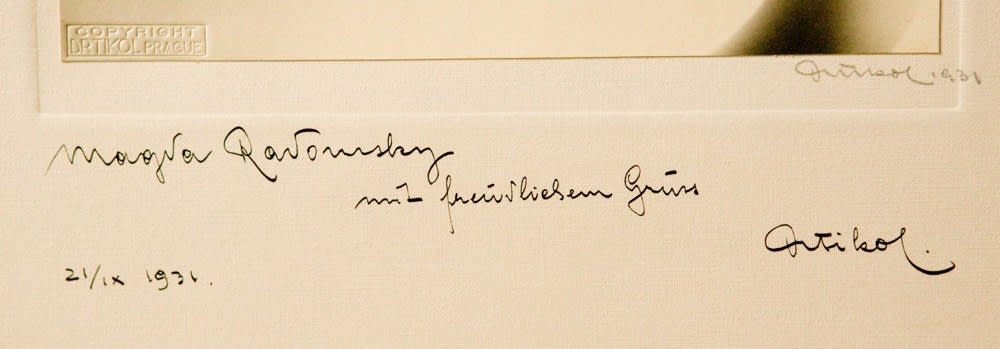 COPYRIGHT
DRTIKOL PRAGUE
Drtikol 1931
Magda Radomsky
mit freudlichem Gruss
Drtikol.
21/IX 1931.